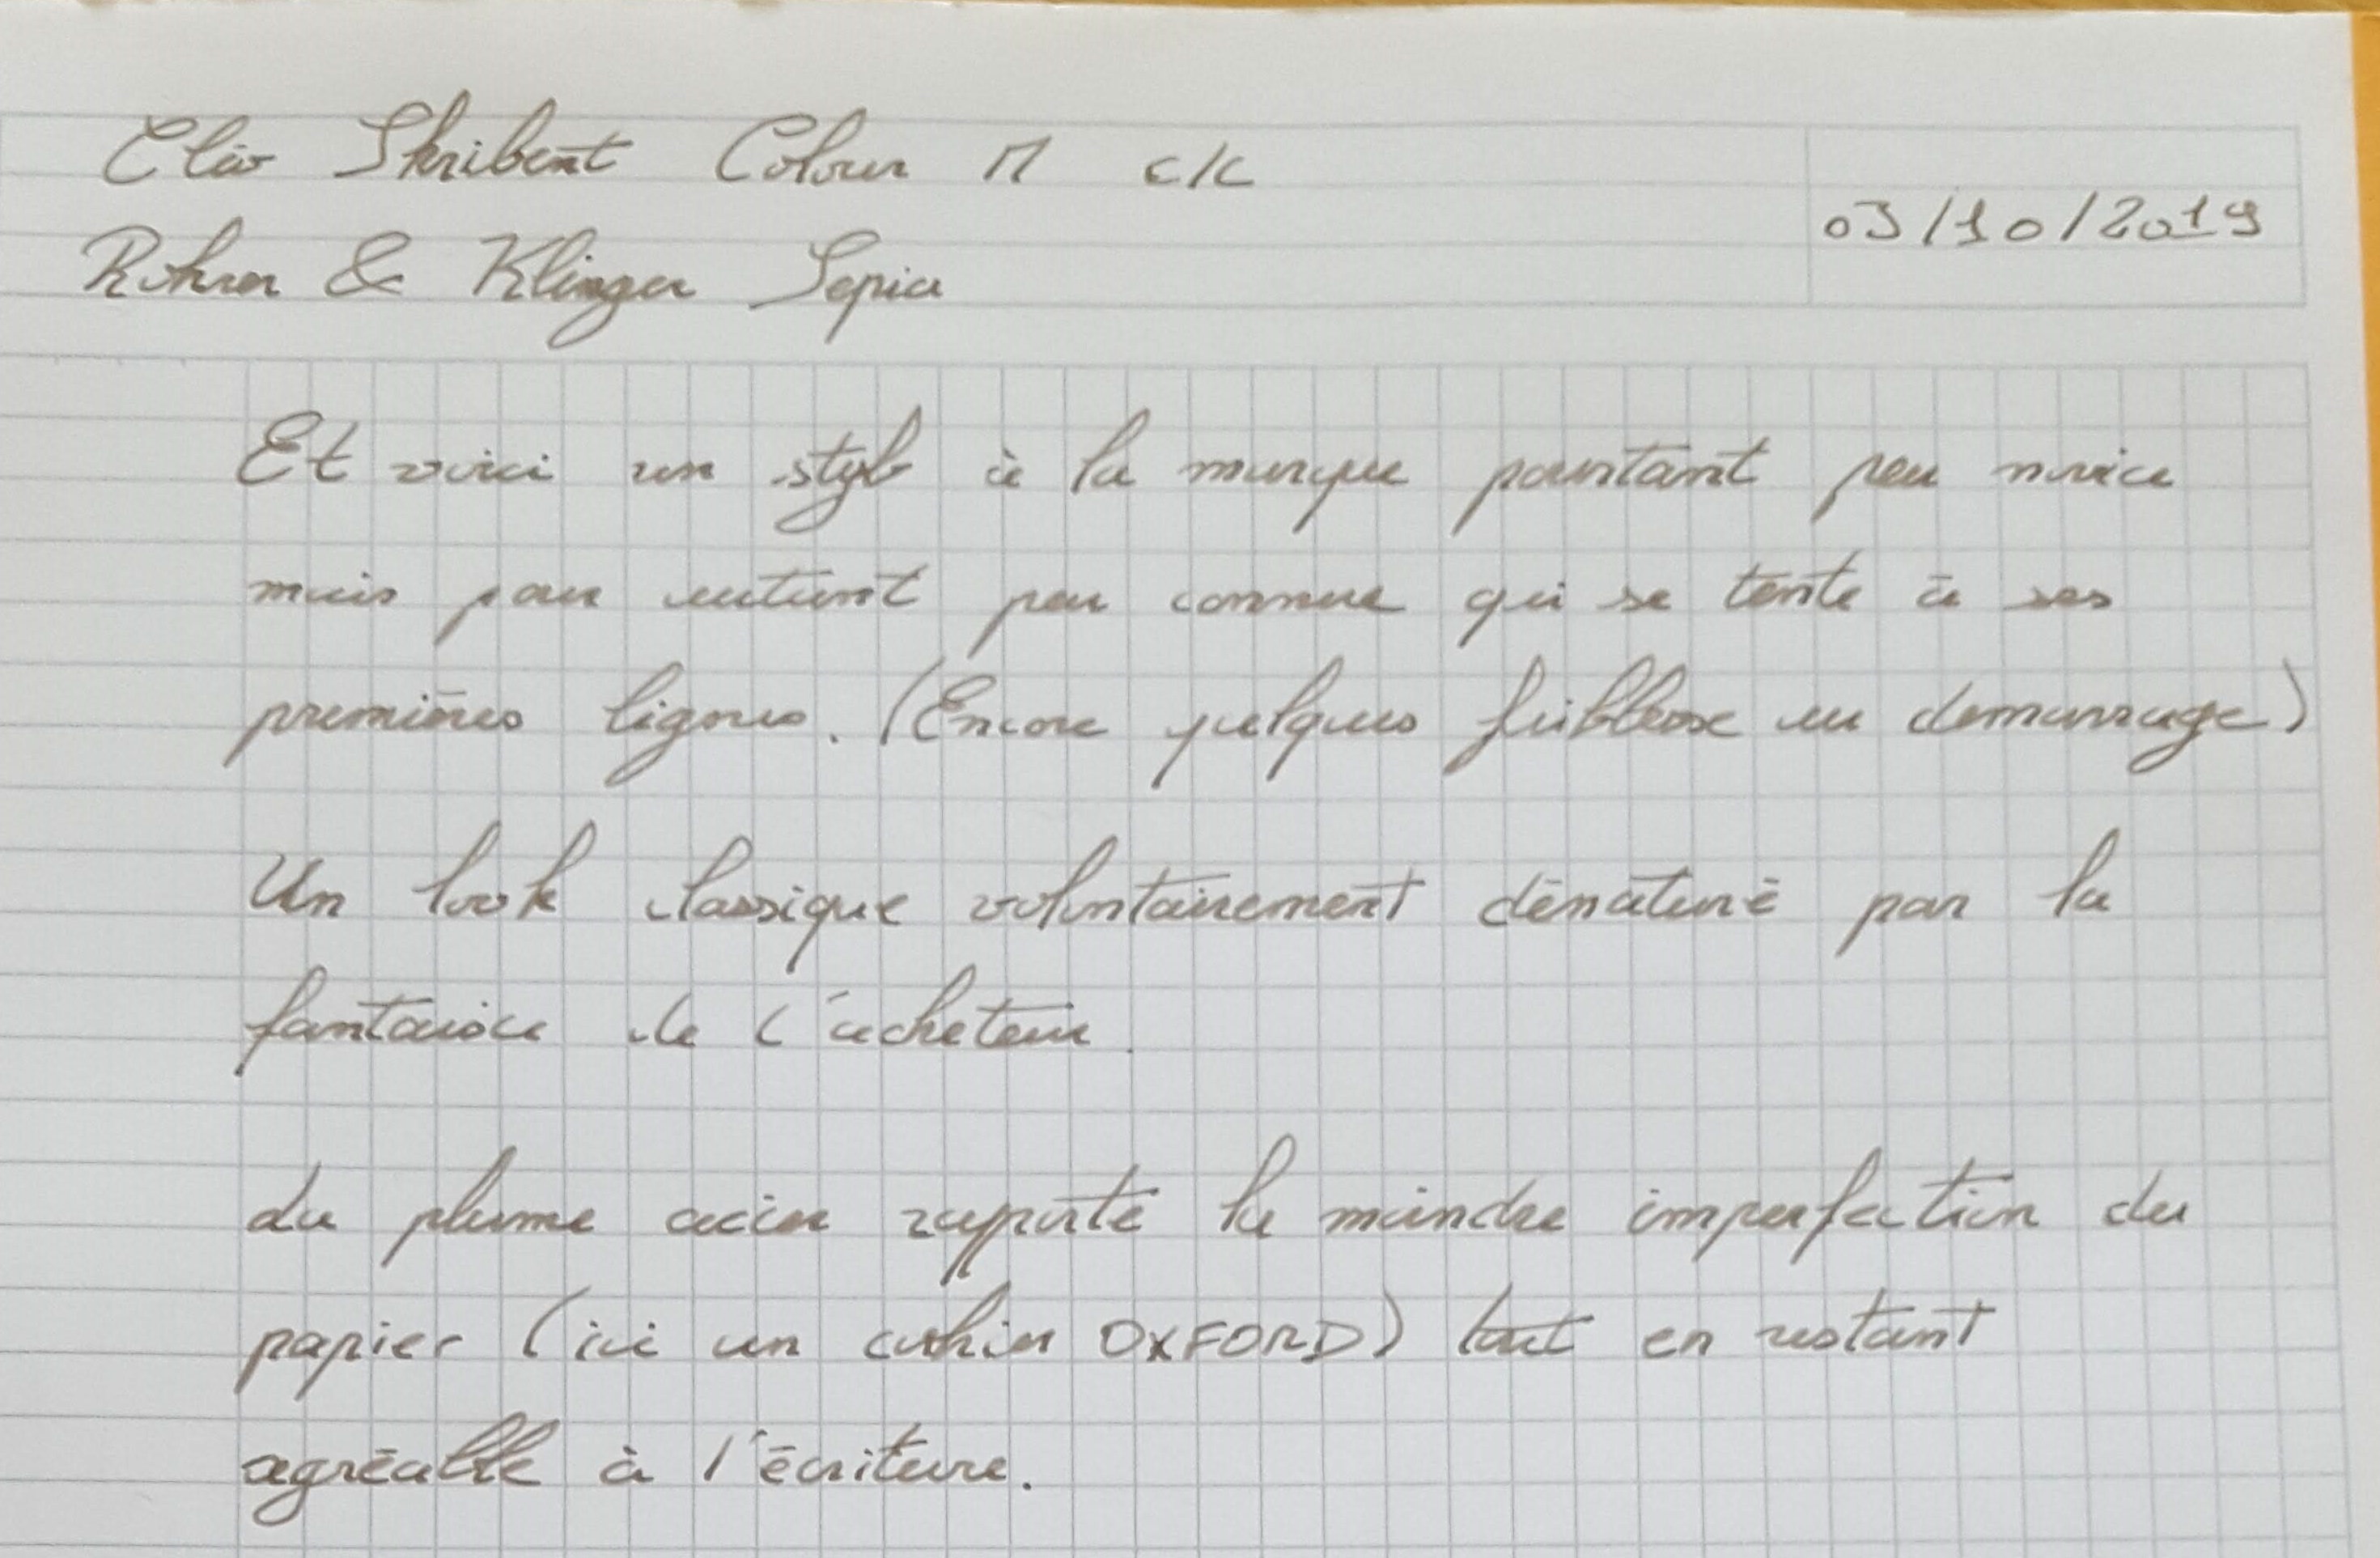 Cleo Skribent Colour M c/c
03/10/2019
Rohrer & Klinger Sepia
Et voici un stylo à la marque pourtant peu novice
mais pour autant peu connue qui se tente à ses
premières lignes. (Encore quelques faiblesse au demarrage)
Un look classique volontairement dénaturé par la
fantaisie de l'acheteur.
La plume acier rapporte la moindre imperfection du
papier (ici un cahier OXFORD) tout en restant
agréable à l'écriture.